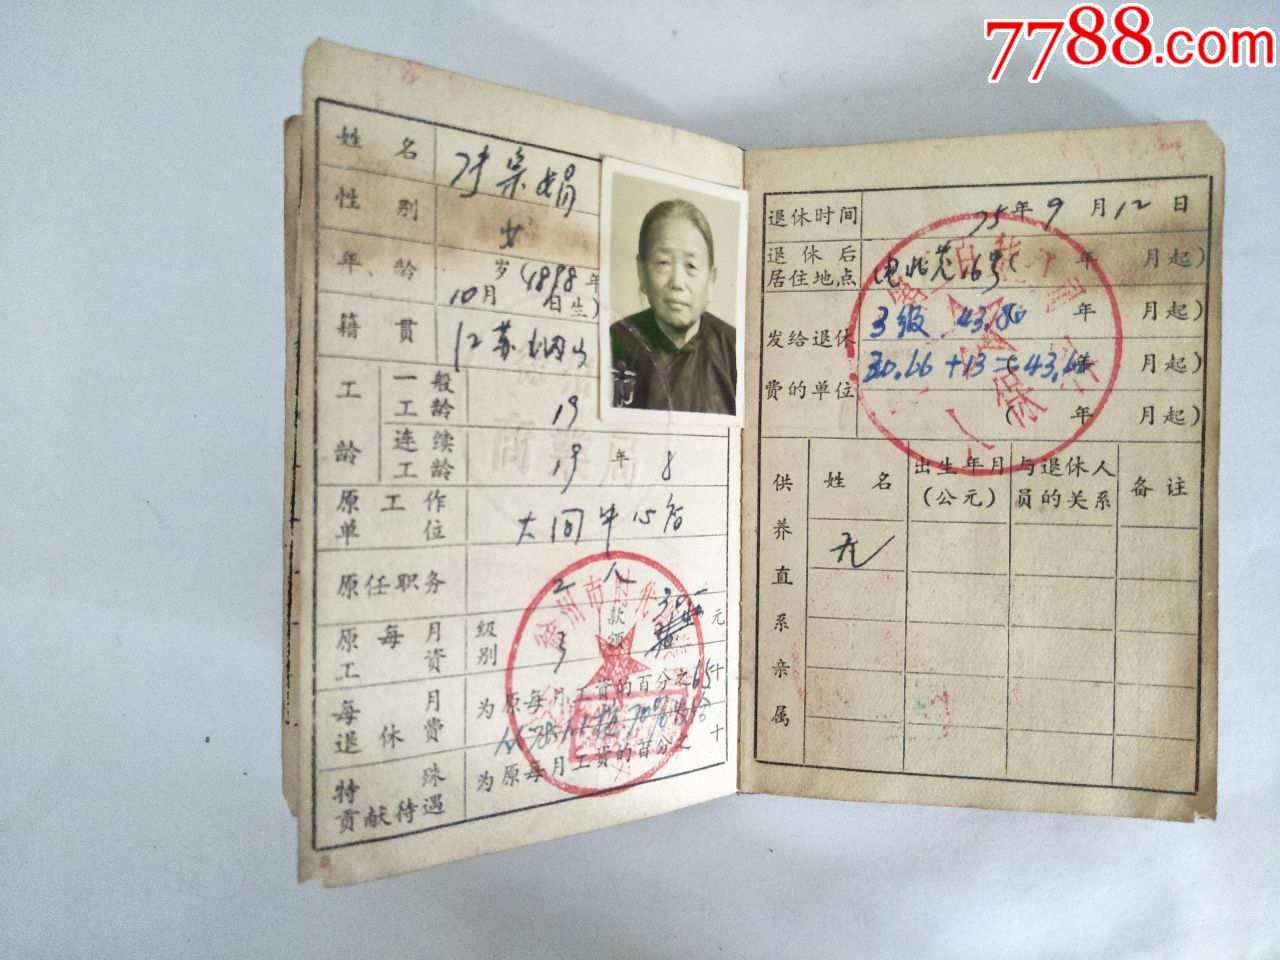 7788.com
姓 名
宗娟
性 别
女
年 龄
岁 1898年
10月 日生)
籍 贯
江苏铜山
工 龄
一般工龄
19
连续工龄
19 年 8
原工作单位
大同中心店
原任职务
工人
原每月工资
级别 3 款额 元
每月退休费
为原每月工资的百分之65十
从78.1.1按70%发给
特殊贡献待遇
为原每月工资的百分之 十
徐州市
退休时间
75年9月12日
退休后居住地点
16号( 年 月起)
发给退休费的单位
3级 43.80 年 月起)
30.66+13=43.66 年 月起)
( 年 月起)
供养直系亲属
姓 名
出生年月(公元)
与退休人员的关系
备注
无